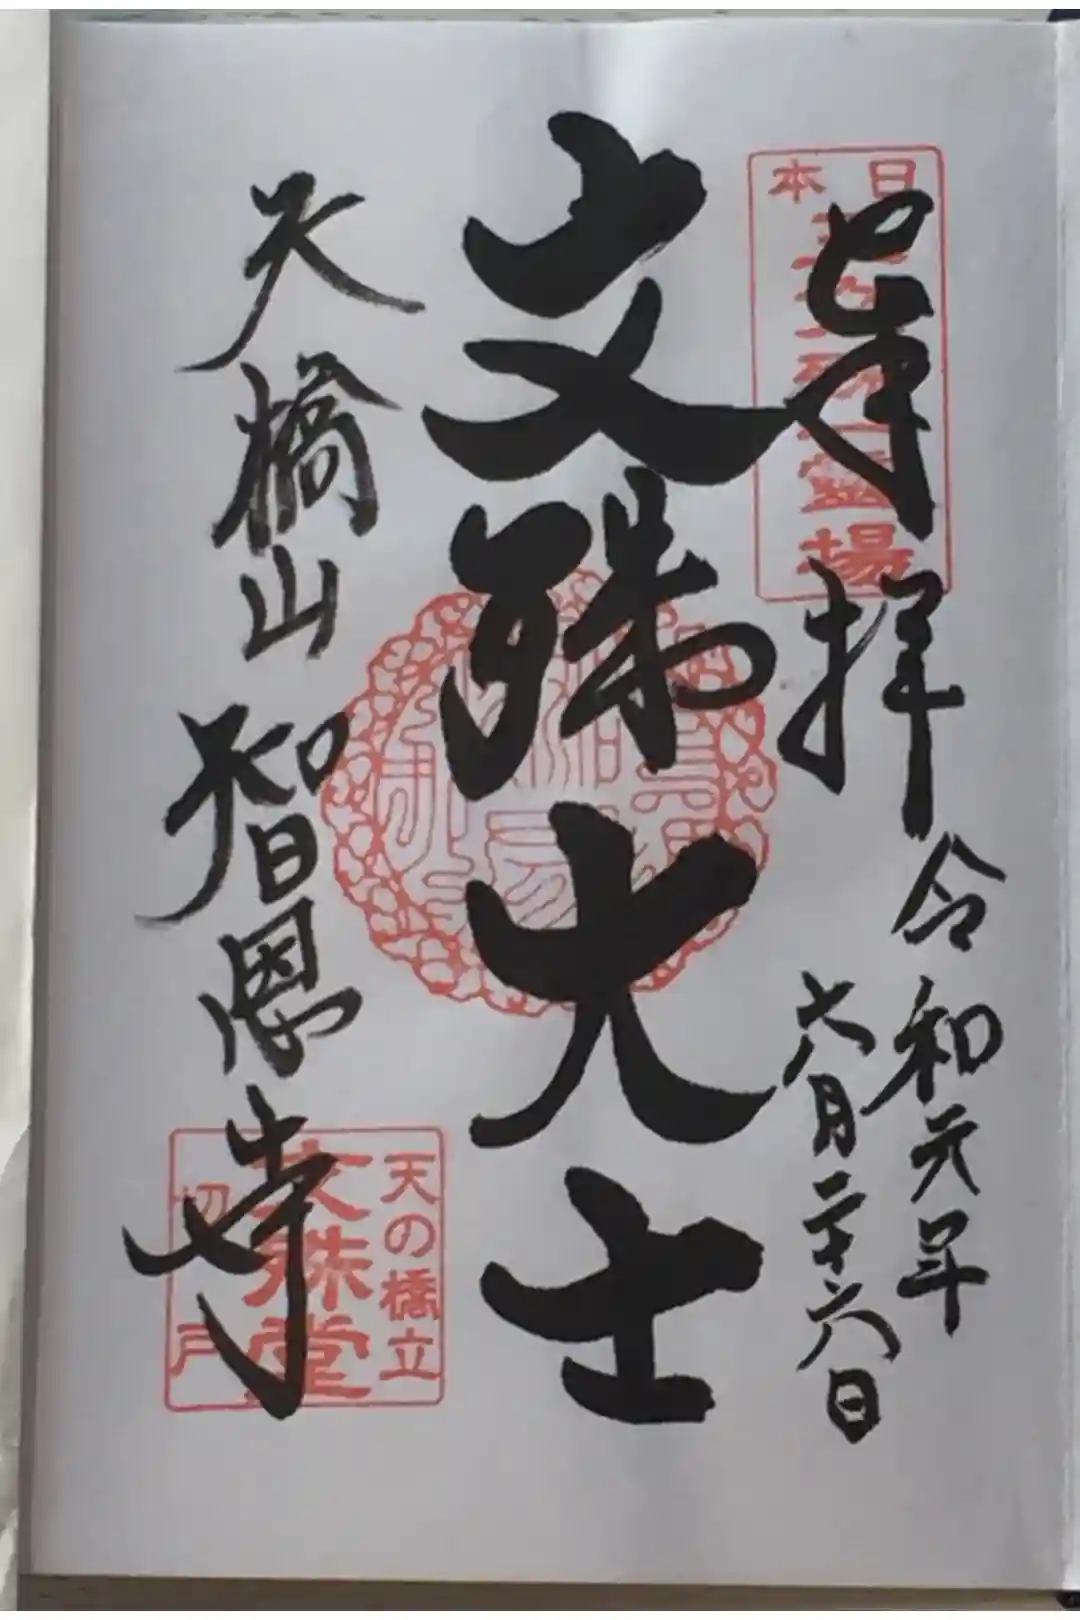 奉拝
令和元年
六月二十六日
文殊大士
天橋山
智恩寺
日本三文殊霊場
天の橋立
文殊堂
切戸